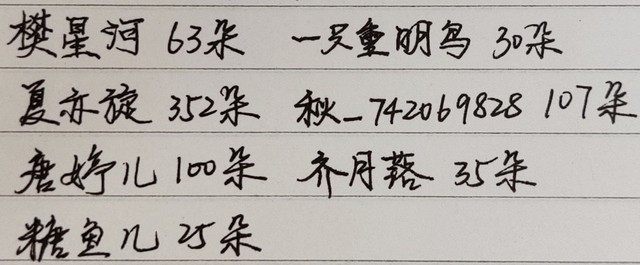 樊星河 63朵 一只重明鸟 30朵
夏亦旋 352朵 秋_742069828 107朵
唐婷儿 100朵 齐月蕗 35朵
糖鱼儿 25朵